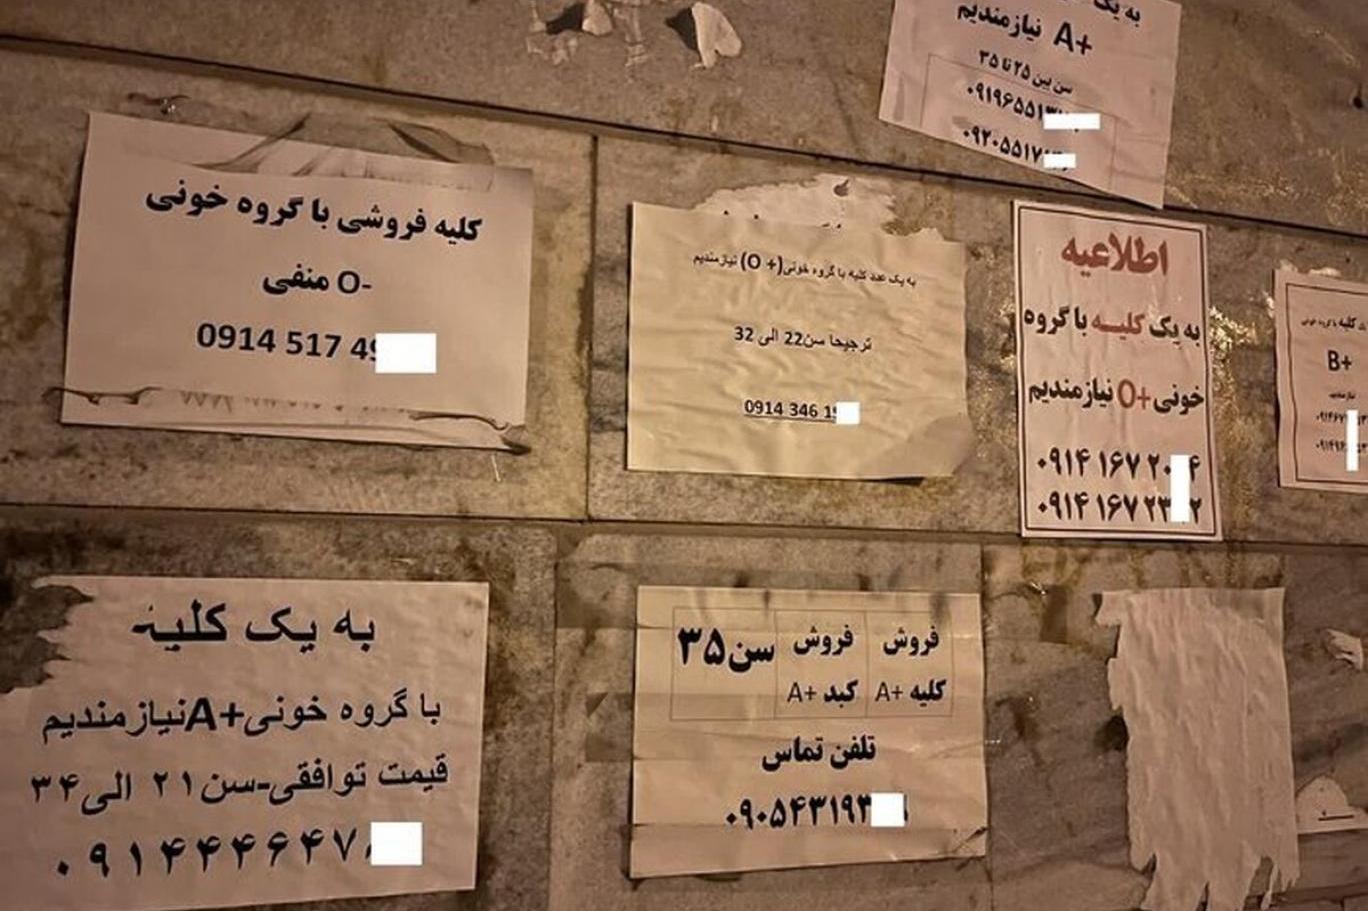 به یک
A+ نیازمندیم
سن بین ۲۵ تا ۳۵
۰۹۱۹۶۵۵۱۳
۰۹۲۰۵۵۱۷
کلیه فروشی با گروه خونی
O- منفی
0914 517 49
به یک عدد کلیه با گروه خونی(O +) نیازمندیم
ترجیحا سن22 الی 32
0914 346 19
اطلاعیه
به یک کلیه با گروه
خونی O+ نیازمندیم
۰۹۱۴ ۱۶۷ ۲۰ ۴
۰۹۱۴ ۱۶۷ ۲۳ ۲
کلیه با گروه خونی
B+
نیازمندیم
۰۹۱۴۶۷
۰۹۱۴۹۶
به یک کلیه
با گروه خونی A+نیازمندیم
قیمت توافقی-سن ۲۱ الی ۳۴
۰۹۱۴۴۴۶۴۷
فروش کلیه A+
فروش کبد A+
سن ۳۵
تلفن تماس
۰۹۰۵۴۳۱۹۳